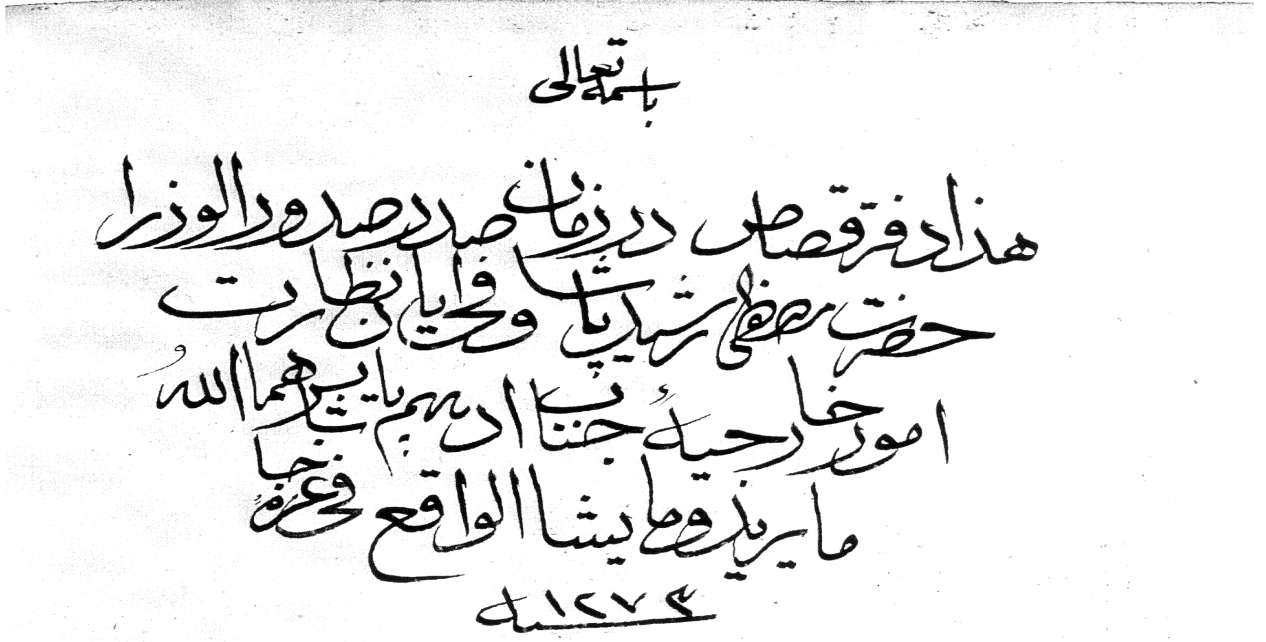 باسمه تعالى
هذا دفتر قصاص در زمان صدر صدور الوزرا
حضرت مصطفى رشيد پاشا وفى ايا نظارت
امور خارجيهٔ جناب ادهم پاشا يسرهما الله
ما يريد وما يشا الواقع فى غرهٔ جا
سنه ١٢٧٣